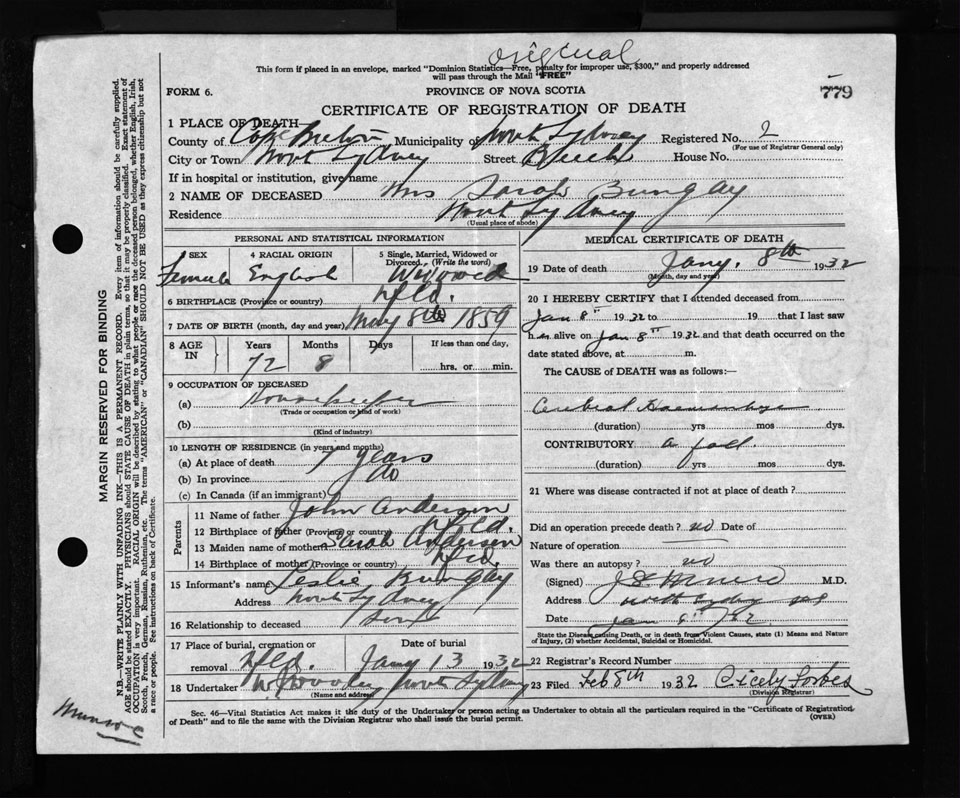 original
This form if placed in an envelope, marked "Dominion Statistics—Free, penalty for improper use, $300," and properly addressed
will pass through the Mail "FREE"
FORM 6.
PROVINCE OF NOVA SCOTIA
779
CERTIFICATE OF REGISTRATION OF DEATH
1 PLACE OF DEATH
County of Cape Breton Municipality of North Sydney Registered No. 2
(For use of Registrar General only)
City or Town North Sydney Street Beech House No.
If in hospital or institution, give name
2 NAME OF DECEASED Mrs Sarah Bungay
Residence North Sydney
(Usual place of abode)
PERSONAL AND STATISTICAL INFORMATION
3 SEX 4 RACIAL ORIGIN 5 Single, Married, Widowed or
Divorced. (Write the word)
Female English Widowed
6 BIRTHPLACE (Province or country) Nfld.
7 DATE OF BIRTH (month, day and year) May 8th 1859
8 AGE IN Years Months Days If less than one day,
72 8 hrs. or min.
9 OCCUPATION OF DECEASED
(a) Housekeeper
(Trade or occupation or kind of work)
(b)
(Kind of industry)
10 LENGTH OF RESIDENCE (in years and months)
(a) At place of death 7 years
(b) In province do
(c) In Canada (if an immigrant)
Parents
11 Name of father John Anderson
12 Birthplace of father (Province or country) Nfld.
13 Maiden name of mother Sarah Anderson
14 Birthplace of mother (Province or country) Nfld.
15 Informant's name Leslie Bungay
Address North Sydney
16 Relationship to deceased Son
17 Place of burial, cremation or Date of burial
removal Nfld. Jany 13 1932
18 Undertaker North Sydney
(Name and address)
MEDICAL CERTIFICATE OF DEATH
19 Date of death Jany. 8th 1932
(Month, day and year)
20 I HEREBY CERTIFY that I attended deceased from
Jan 8th 1932 to 19 that I last saw
h er alive on Jan 8th 1932 and that death occurred on
date stated above, at m.
The CAUSE of DEATH was as follows:—
Cerebral Haemorrhage
(duration) yrs mos dys.
CONTRIBUTORY a fall
(duration) yrs mos dys.
21 Where was disease contracted if not at place of death?
Did an operation precede death? no Date of
Nature of operation
Was there an autopsy? no
(Signed) M.D.
Address North Sydney NS
Date Jan 8th /32
State the Disease causing Death, or in death from Violent Causes, state (1) Means and Nature
of Injury, (2) whether Accidental, Suicidal or Homicidal.
22 Registrar's Record Number
23 Filed Feb 8th 1932 Cicely Forbes
(Division Registrar)
Sec. 46—Vital Statistics Act makes it the duty of the Undertaker or person acting as Undertaker to obtain all the particulars required in the "Certificate of Registration
of Death" and to file the same with the Division Registrar who shall issue the burial permit.
(OVER)
MARGIN RESERVED FOR BINDING
N.B.—WRITE PLAINLY WITH UNFADING INK—THIS IS A PERMANENT RECORD. Every item of information should be carefully supplied.
AGE should be stated EXACTLY. PHYSICIANS should STATE CAUSE OF DEATH in plain terms, so that it may be properly classified. Exact statement of
OCCUPATION is very important. RACIAL ORIGIN will be described by stating to what people or race the deceased person belonged, whether English, Irish,
Scotch, French, German, Russian, Ruthenian, etc. The terms "AMERICAN" or "CANADIAN" SHOULD NOT BE USED as they express citizenship but not
a race or people. See instructions on back of Certificate.